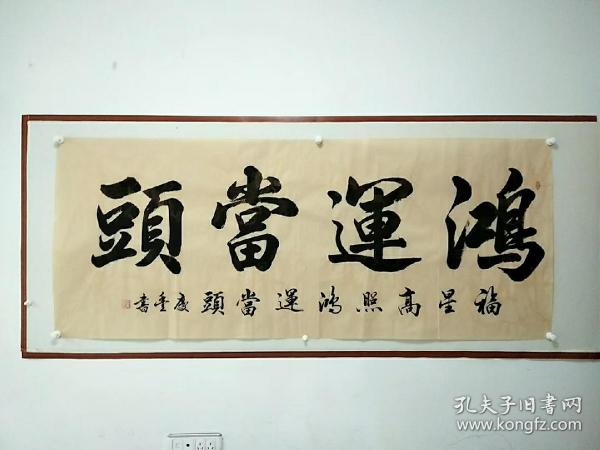 鴻運當頭
福星高照鴻運當頭慶重書
孔夫子旧书网
www.kongfz.com